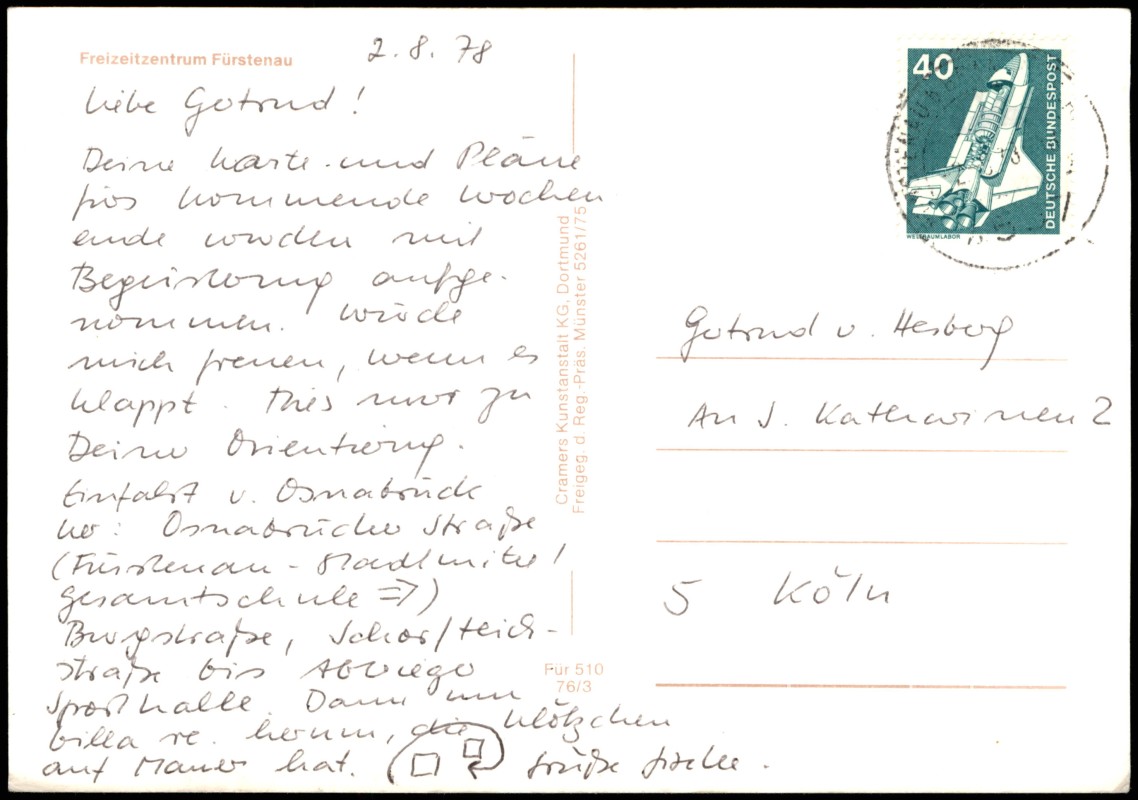 Freizeitzentrum Fürstenau
2.8.78
Liebe Gotrud!
Deine Karte und Pläne
fürs kommende Wochen
ende wurden mit
Begeisterung aufge-
nommen. Würde
mich freuen, wenn es
klappt. Dies nur zu
Deiner Orientierung.
Einfahrt v. Osnabrück
her: Osnabrücker Straße
(Fürstenau - Stadtmitte/
Gesamtschule ⇒)
Burgstraße, Schor/teich-
straße bis Abbiege
Sporthalle. Dann um
Villa re. herum, die Klötzchen
auf Mauer hat. Grüße
Cramers Kunstanstalt KG, Dortmund
Freigeg. d. Reg.-Präs. Münster 5261/75
Für 510
76/3
40
DEUTSCHE BUNDESPOST
WELTRAUMLABOR
Gotrud v. Hesberg
An d. Katharinen 2
5 Köln